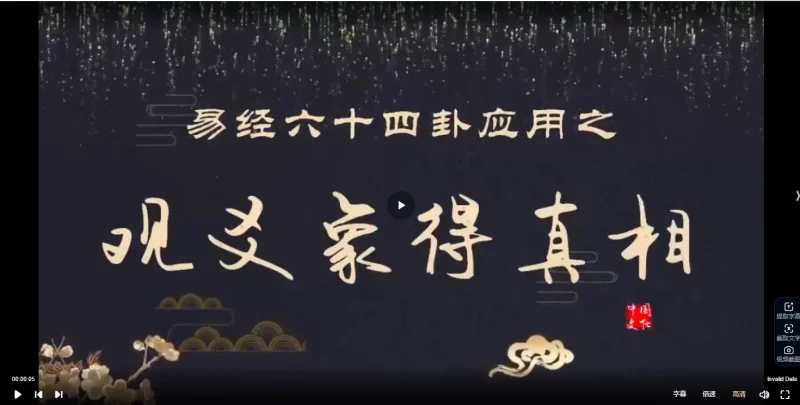 易经六十四卦应用之
观爻象得真相
中国
文化
提取字幕
截取文字
视频截图
00:00:05
Invalid Date
字幕
倍速
高清